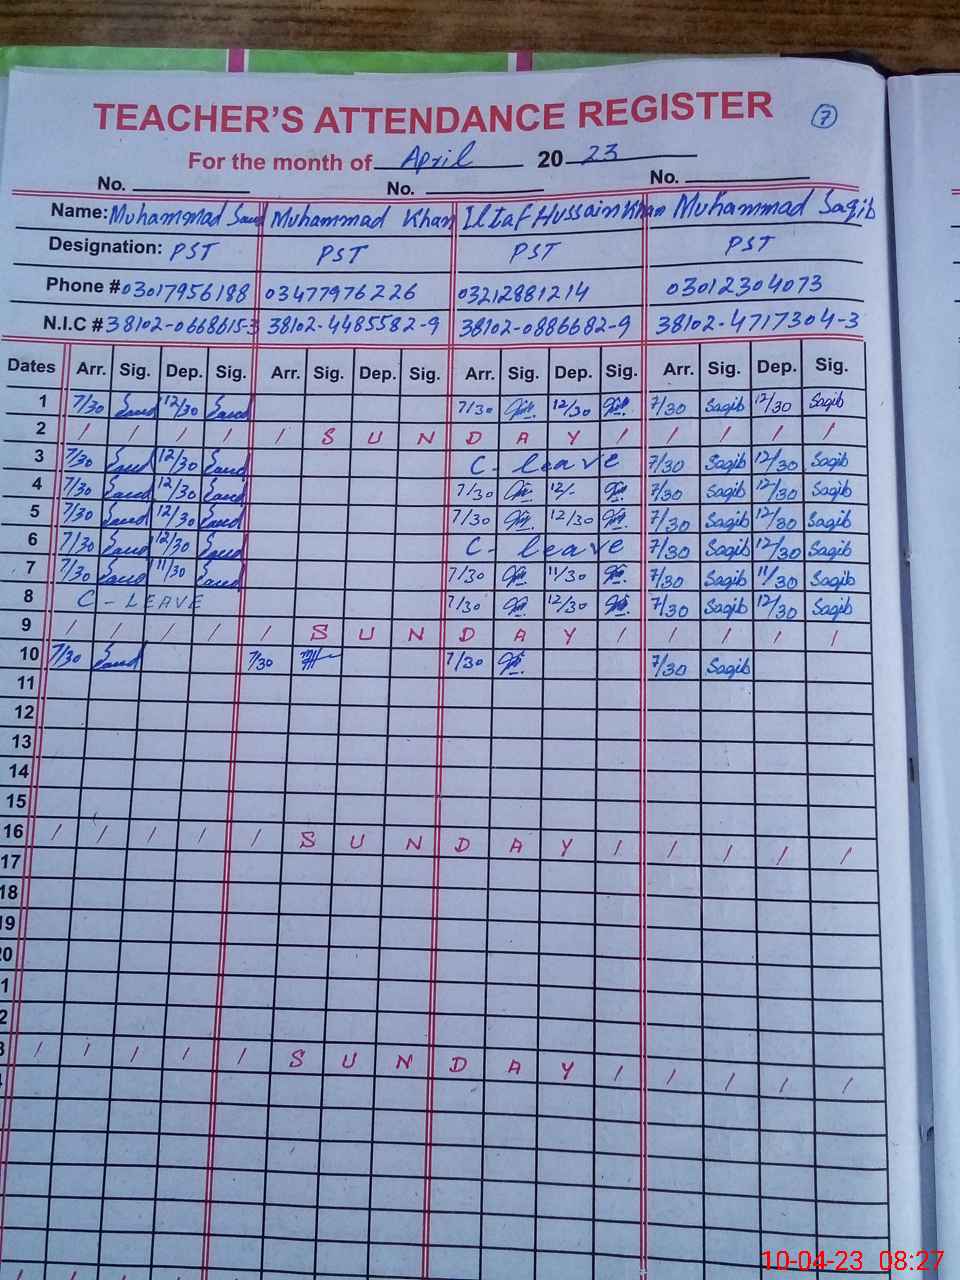 TEACHER'S ATTENDANCE REGISTER 7
For the month of April 2023
No. No. No.
Name: Muhammad Saud Muhammad Khan Iltaf Hussain Khan Muhammad Saqib
Designation: PST PST PST PST
Phone # 03017956188 03477976226 03212881214 03012304073
N.I.C # 38102-0668615-3 38102-4485582-9 38102-0886682-9 38102-4717304-3
Dates Arr. Sig. Dep. Sig. Arr. Sig. Dep. Sig. Arr. Sig. Dep. Sig. Arr. Sig. Dep. Sig.
1 7/30 Saud 12/30 Saud 7/30 12/30 7/30 Saqib 12/30 Saqib
2 / / / / / S U N D A Y / / / / /
3 7/30 Saud 12/30 Saud C- leave 7/30 Saqib 12/30 Saqib
4 7/30 Saud 12/30 Saud 7/30 12/- 7/30 Saqib 12/30 Saqib
5 7/30 Saud 12/30 Saud 7/30 12/30 7/30 Saqib 12/30 Saqib
6 7/30 Saud 12/30 Saud C- leave 7/30 Saqib 12/30 Saqib
7 7/30 Saud 11/30 Saud 7/30 11/30 7/30 Saqib 11/30 Saqib
8 C-LEAVE 7/30 12/30 7/30 Saqib 12/30 Saqib
9 / / / / / S U N D A Y / / / / /
10 7/30 Saud 7/30 7/30 7/30 Saqib
11
12
13
14
15
16 / / / / / S U N D A Y / / / / /
17
18
19
20
1
2
3 / / / / / S U N D A Y / / / / /
10-04-23 08:27